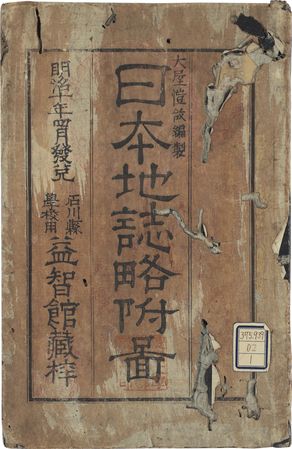 大屋愷㪉編製
日本地誌略附圖
石川縣
學校用
益智館藏梓
明治十年四月發兌
375.939
D2
1